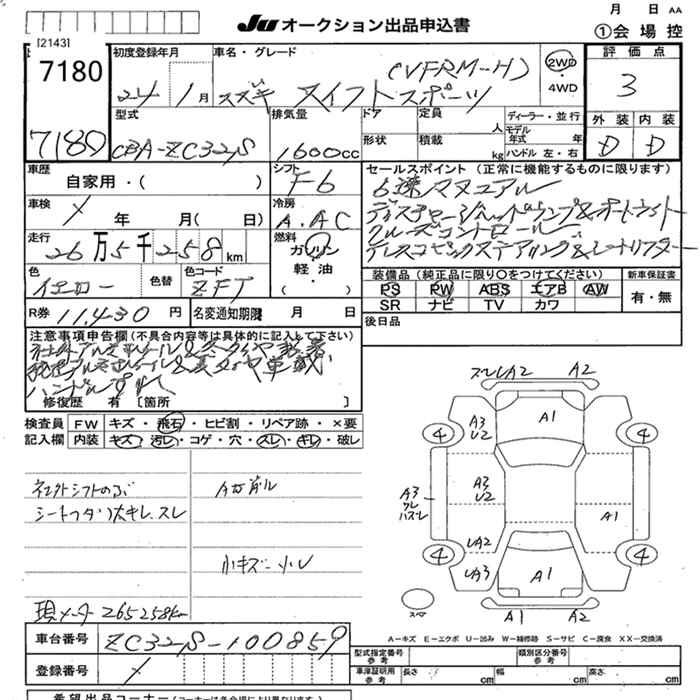 月 日 AA
JU オークション出品申込書
①会場控
[2143]
7180
7180
初度登録年月
24年 1月
車名・グレード
(VFRM-H)
スズキ スイフトスポーツ
2WD
・
4WD
評価点
3
型式
CBA-ZC32S
排気量
1600cc
ドア
定員
人
ディーラー・並行
形状
積載
kg
モデル年式 年
ハンドル 左・右
外装 内装
D D
車歴
自家用・( )
シフト
F6
セールスポイント (正常に機能するものに限ります)
6速マニュアル
ディスチャージヘッドランプ&オートライト
クルーズコントロール
テレスコピックステアリング&シートリフター
車検
× 年 月( 日)
冷房
A.AC
走行
26万5千258km
燃料
ガソリン
軽油・
( )
色
イエロー
色替
色コード
ZFT
装備品 (純正品に限り○をつけてください)
PS PW ABS エアB AW
SR ナビ TV カワ
新車保証書
有・無
R券
11,430円
名変通知期限 月 日
後日品
注意事項申告欄(不具合内容等は具体的に記入して下さい)
ハンドルすれ
修復歴 有 [箇所 ]
検査員
記入欄
FW キズ・飛石・ヒビ割・リペア跡・×要
内装 キズ・汚レ・コゲ・穴・スレ・キレ・破レ
社外シフトのぶ
シートフタリ大キレ.スレ
小キズ 小U
現メータ 265258km
スレUA2 A2
A1
A3
U2
4
4
A3
U2
A3
A1
UA2
4
4
UA3
A1
A1 A2
スペア
A-キズ E-エクボ U-凹み W-補修跡 S-サビ C-腐食 XX-交換済
車台番号
ZC32S-100859
型式指定番号
参考
類別区分番号
参考
登録番号
×
車庫証明用
参考
長さ 幅 高さ
希望出品コーナー(コーナー名は会場により異なります)